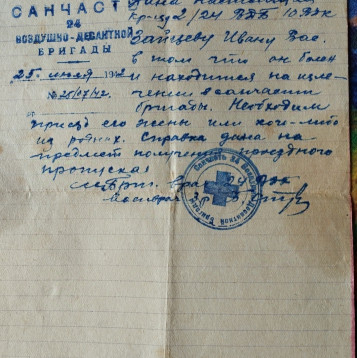 САНЧАСТ
24
ВОЗДУШНО-ДЕСАНТНОЙ
БРИГАДЫ
25. июля 1942
№ 25/07/42.
Дана настоящая
кр-цу 2/24 ВДБ 10 ВДК
Зайцеву Ивану Вас.
в том что он болен
и находится на изле-
чении в санчасти
бригады. Необходим
приезд его жены или кого-либо
из родных. Справка дана на
предмет получения поездного
пропуска.